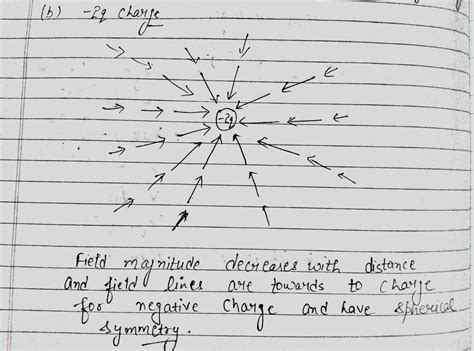 (b) -2q charge
-2q
Field magnitude decreases with distance
and field lines are towards to charge
for negative charge and have spherical
symmetry.